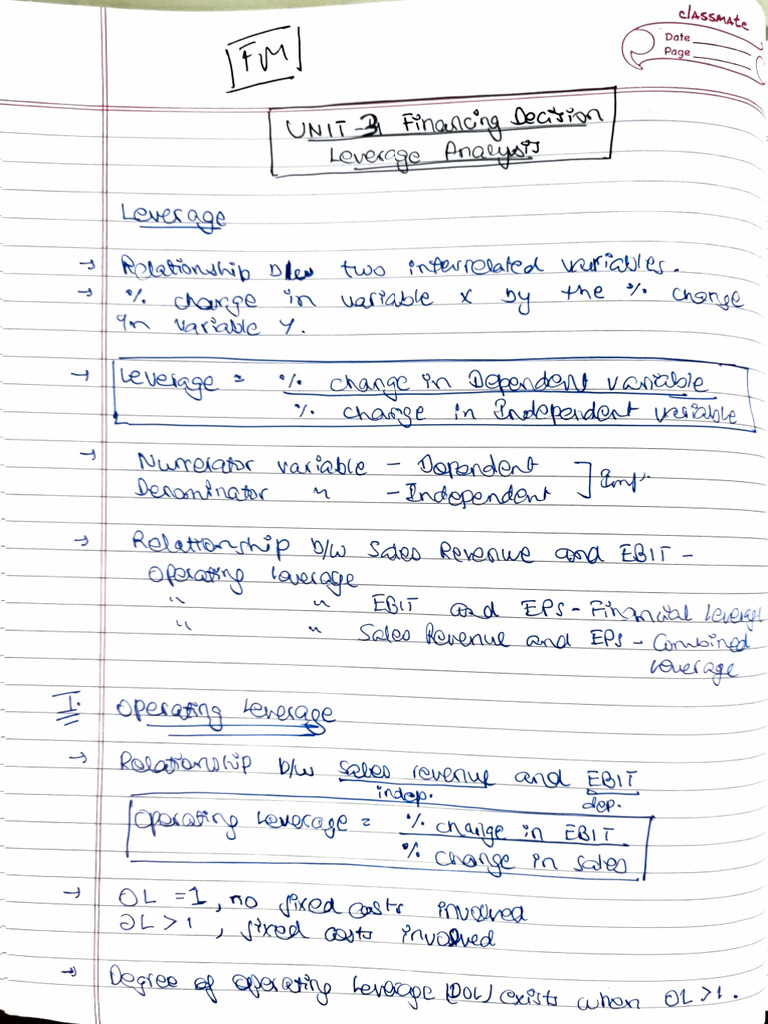 classmate
Date
Page
FM
UNIT-3 Financing Decision
Leverage Analysis
Leverage
→ Relationship b/w two interrelated variables.
→ % change in variable x by the % change
in variable y.
→ Leverage = % change in Dependent variable
% change in Independent variable
→ Numerator variable - Dependent
Denominator " - Independent ] Imp.
→ Relationship b/w Sales Revenue and EBIT -
Operating leverage
" " EBIT and EPS - Financial Leverage
" " Sales Revenue and EPS - Combined
leverage
I. Operating Leverage
→ Relationship b/w sales revenue and EBIT
indep. dep.
Operating Leverage = % change in EBIT
% change in sales
→ OL = 1, no fixed costs involved
OL > 1, fixed costs involved
→ Degree of operating leverage (DOL) exists when OL > 1.